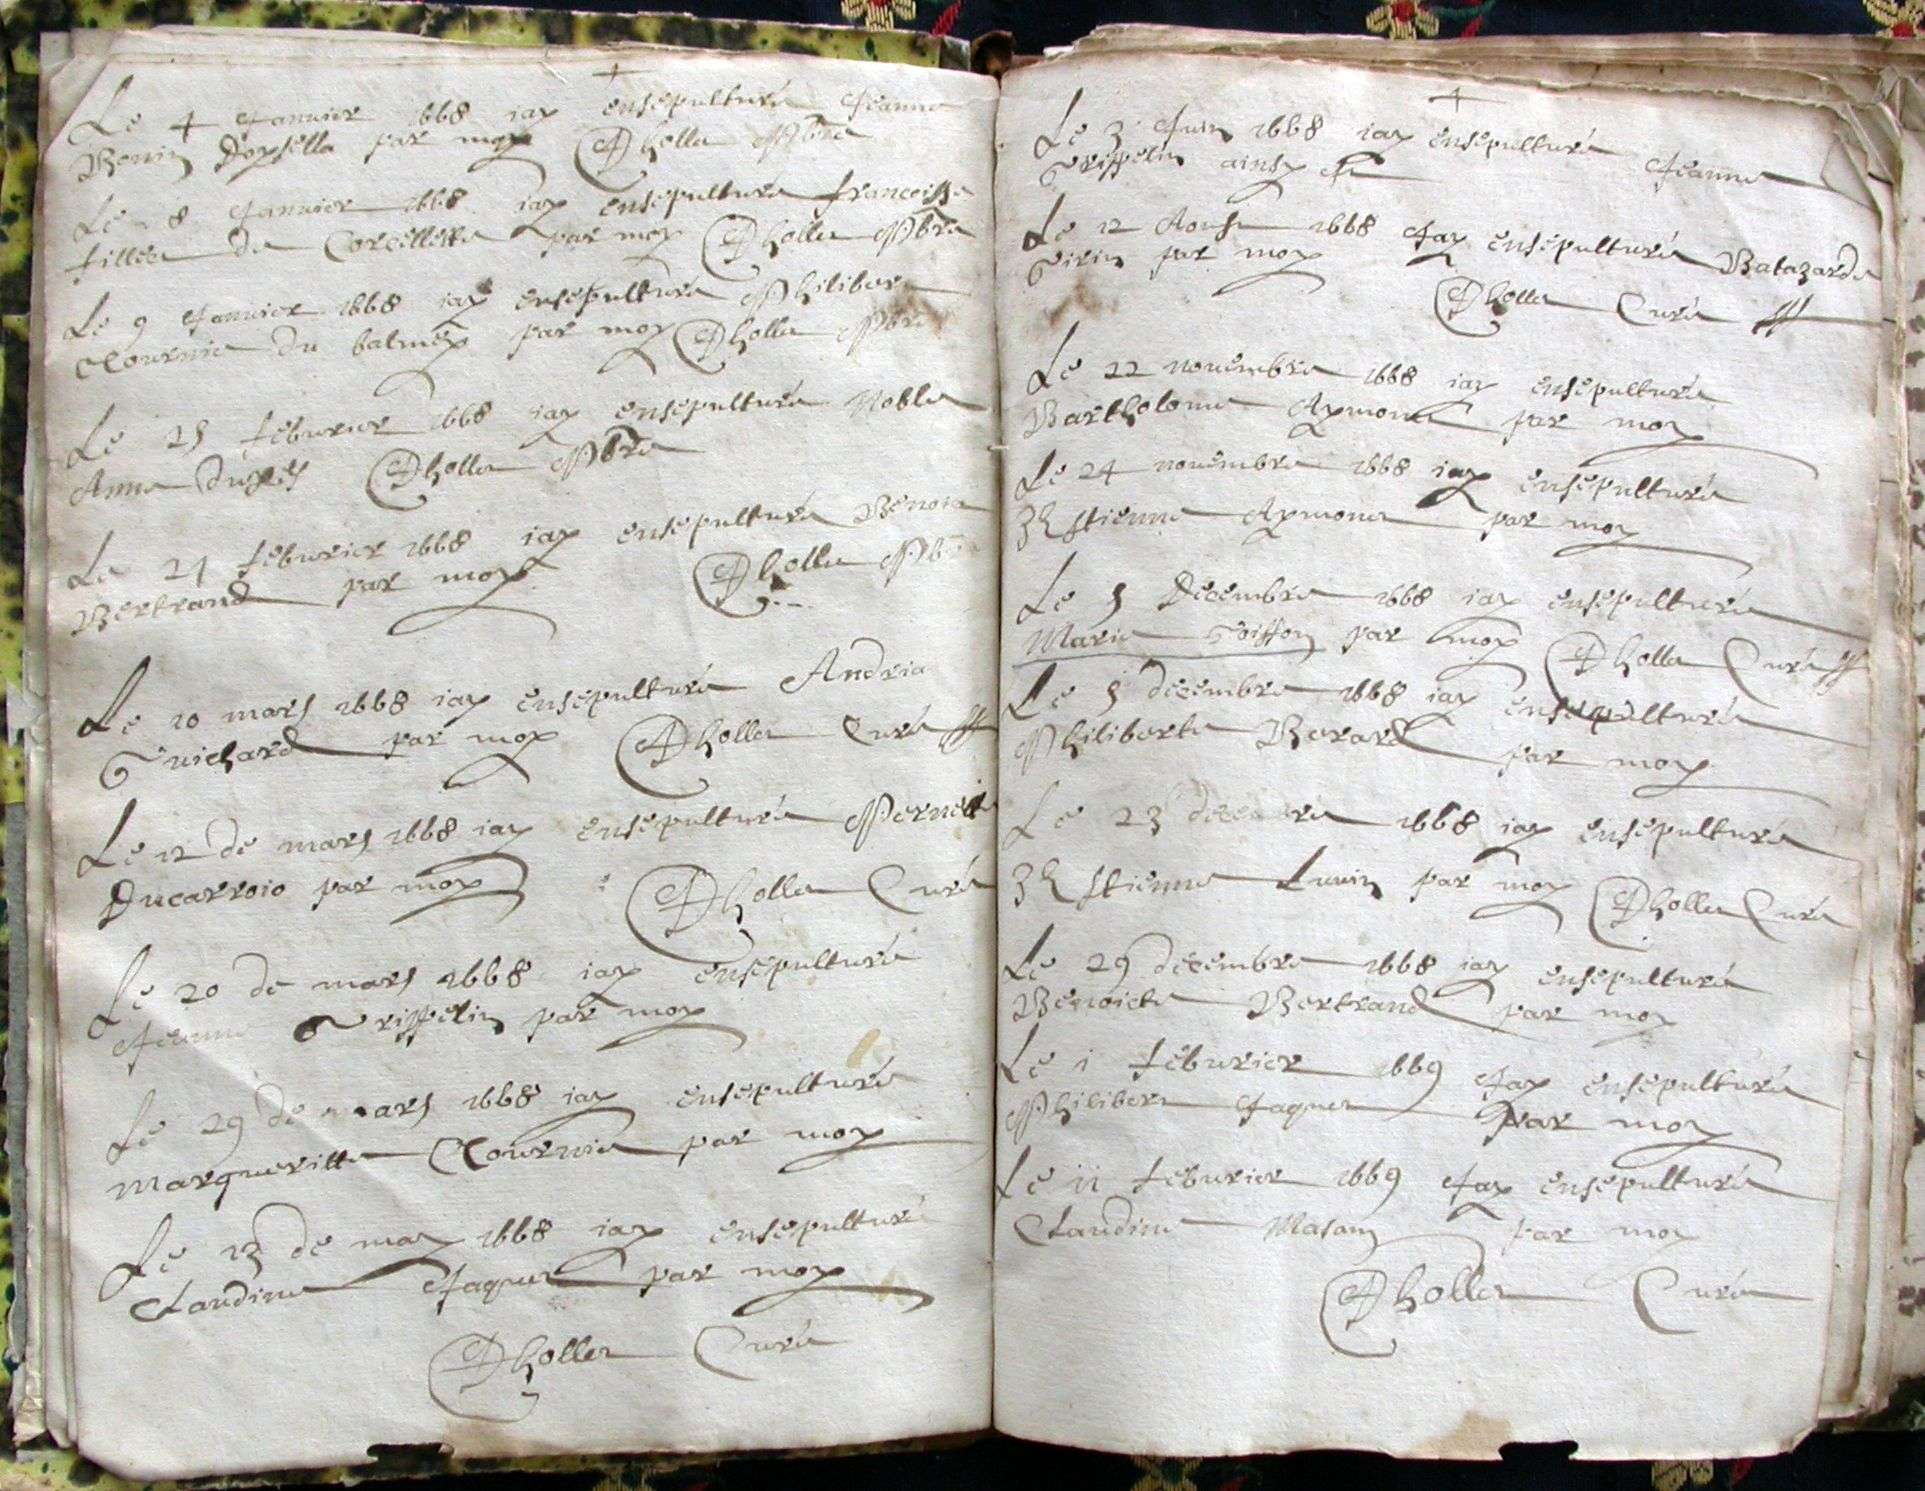 Le 4 Janvier 1668 iay ensepulturé Jeanne
par moy Dholler Pbre
Le 8 Janvier 1668 iay ensepulturé francoisse
fillieu de Corcellette par moy Dholler Pbre
Le 9 Janvier 1668 iay ensepulturé Philibert
Cournie du balmey par moy Dholler Pbre
Le 25 feburier 1668 iay ensepulturé Noble
Anne Dholler Pbre
Le 21 feburier 1668 iay ensepulturé Benoit
Bertrand par moy Dholler Pbre
Le 10 mars 1668 iay ensepulturé Andria
Guichard par moy Dholler Curé
Le 12 de mars 1668 iay ensepulturé Pernette
Ducarroio par moy Dholler Curé
Le 20 de mars 1668 iay ensepulturé
Jeanne Grippelin par moy
Le 29 de mars 1668 iay ensepulturé
marqueritte Cournie par moy
Le 13 de may 1668 iay ensepulturé
Claudine Jaquet par moy
Dholler Curé
Le 3 Juin 1668 iay ensepulturé Jeanne
Grippelin ainsy est
Le 12 Aoust 1668 Jay ensepulturé Batazarde
Girin par moy
Dholler Curé
Le 22 nouembre 1668 iay ensepulturé
Bartholome Aymone par moy
Le 24 nouembre 1668 iay ensepulturé
Estienne Aymone par moy
Le 5 Decembre 1668 iay ensepulturé
Marie Goiffon par moy Dholler Curé
Le 5 decembre 1668 iay ensepulturé
Philiberte Berard par moy
Le 23 decembre 1668 iay ensepulturé
Estienne Luuin par moy Dholler Curé
Le 29 decembre 1668 iay ensepulturé
Benoicte Bertrand par moy
Le 1 feburier 1669 Jay ensepulturé
Philibert Jaquet par moy
Le 11 feburier 1669 Jay ensepulturé
Claudine Masson par moy
Dholler Curé